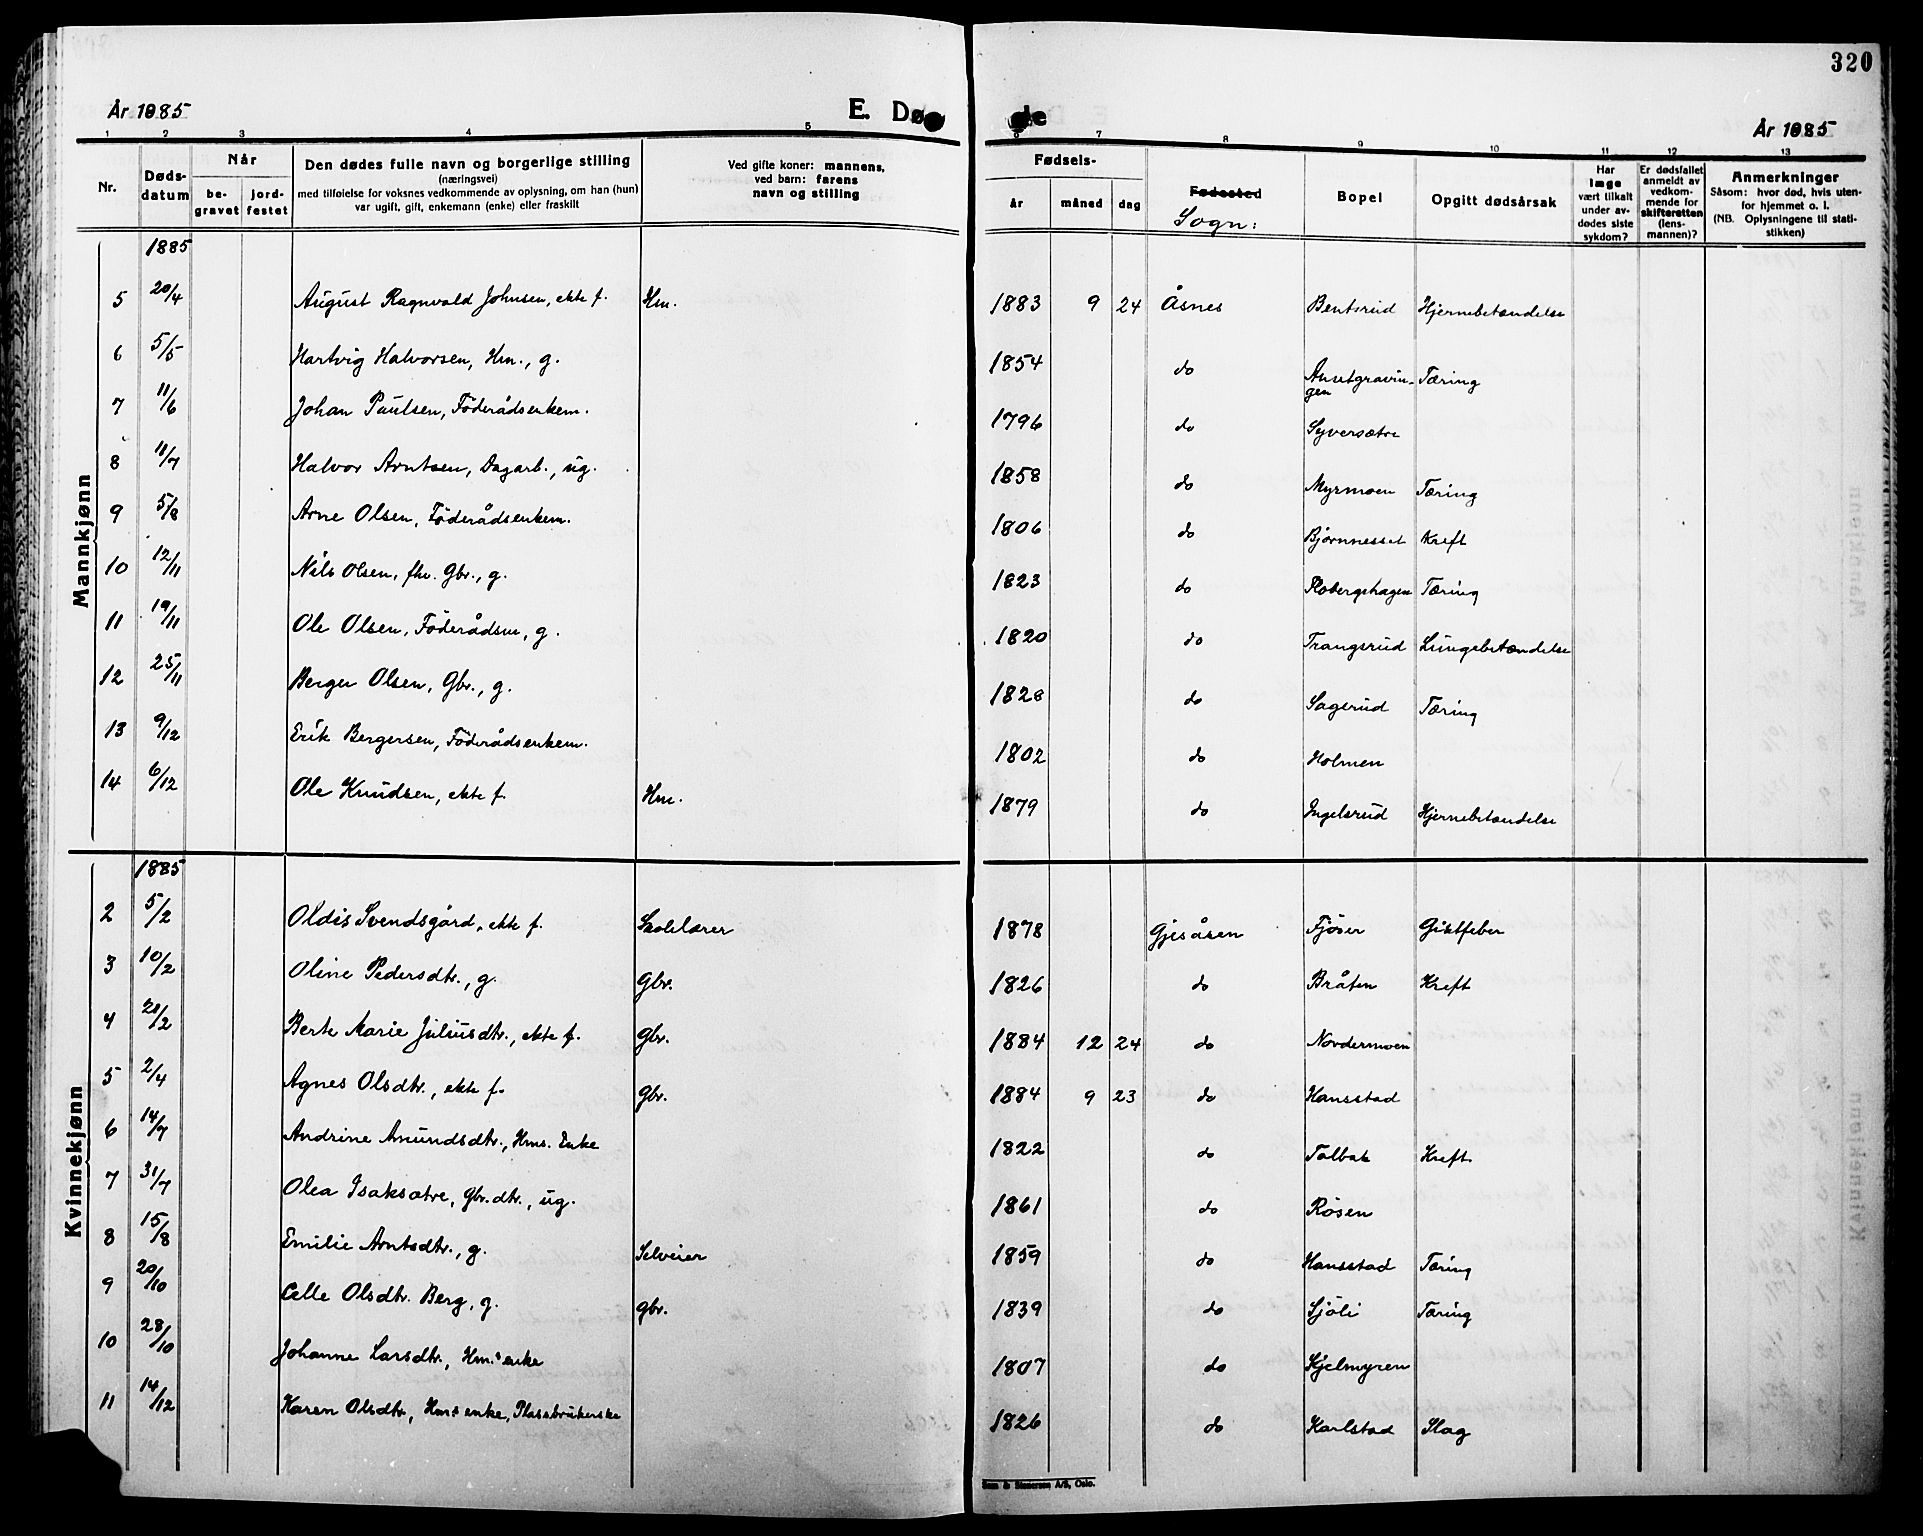 320
År 1885
E. Dø de
År 1885
1 2 3 4 5 6 7 8 9 10 11 12 13
Nr.
Døds-
datum
Når
be-
gravet
jord-
festet
Den dødes fulle navn og borgerlige stilling
(næringsvei)
med tilføielse for voksnes vedkommende av oplysning, om han (hun)
var ugift, gift, enkemann (enke) eller fraskilt
Ved gifte koner: mannens,
ved barn: farens
navn og stilling
Fødsels-
år måned dag
Fødested
Sogn:
Bopel
Opgitt dødsårsak
Har
læge
vært tilkalt
under av-
dødes siste
sykdom?
Er dødsfallet
anmeldt av
vedkom-
mende for
skifteretten
(lens-
mannen)?
Anmerkninger
Såsom: hvor død, hvis uten-
for hjemmet o. l.
(NB. Oplysningene til stati-
stikken)
Mannkjønn
1885
5 20/4 August Ragnvald Johnsen, ekte f. Hm. 1883 9 24 Åsnes Bentsrud Hjernebetændelse
6 5/5 Hartvig Halvorsen, Hm., g. 1854 do Ansetgravin-
gen Tæring
7 11/6 Johan Paulsen, Föderådsenkem. 1796 do Syversætre
8 11/7 Halvor Arntsen, Dagarb., ug. 1858 do Myrmoen Tæring
9 5/8 Arne Olsen, Föderådsenkem. 1806 do Bjørnnesset Kreft
10 12/11 Nils Olsen, fhv. Gbr., g. 1823 do Robergshagen Tæring
11 19/11 Ole Olsen, Föderådsm, g. 1820 do Trangsrud Lungebetændelse
12 25/11 Berger Olsen, Gbr., g. 1828 do Sagerud Tæring
13 9/12 Erik Bergersen, Föderådsenkem. 1802 do Holmen
14 6/12 Ole Knudsen, ekte f. Hm. 1879 do Ingelsrud Hjernebetændelse
Kvinnekjønn
1885
2 5/2 Oldis Svendsgård, ekte f. Skolelærer 1878 Gjesåsen Fjöser Giktfeber
3 10/2 Oline Pedersdtr., g. Gbr. 1826 do Bråten Kreft
4 28/2 Berte Marie Juliusdtr., ekte f. Gbr. 1884 12 24 do Nordermoen
5 2/4 Agnes Olsdtr., ekte f. Gbr. 1884 9 23 do Hansstad
6 14/7 Andrine Amundsdtr., Hms. Enke 1822 do Talbak Kreft
7 31/7 Olea Isaksætre, Gbr.dtr., ug. 1861 do Rösen
8 15/8 Emilie Arntsdtr., g. Selveier 1859 do Hansstad Tæring
9 20/10 Celle Olsdtr. Berg, g. Gbr. 1839 do Sjöli Tæring
10 28/10 Johanne Larsdtr., Hm.s enke 1807 do Kjelmyren
11 14/12 Karen Olsdtr, Hms enke, Plassbrukerske 1826 do Karlstad Slag